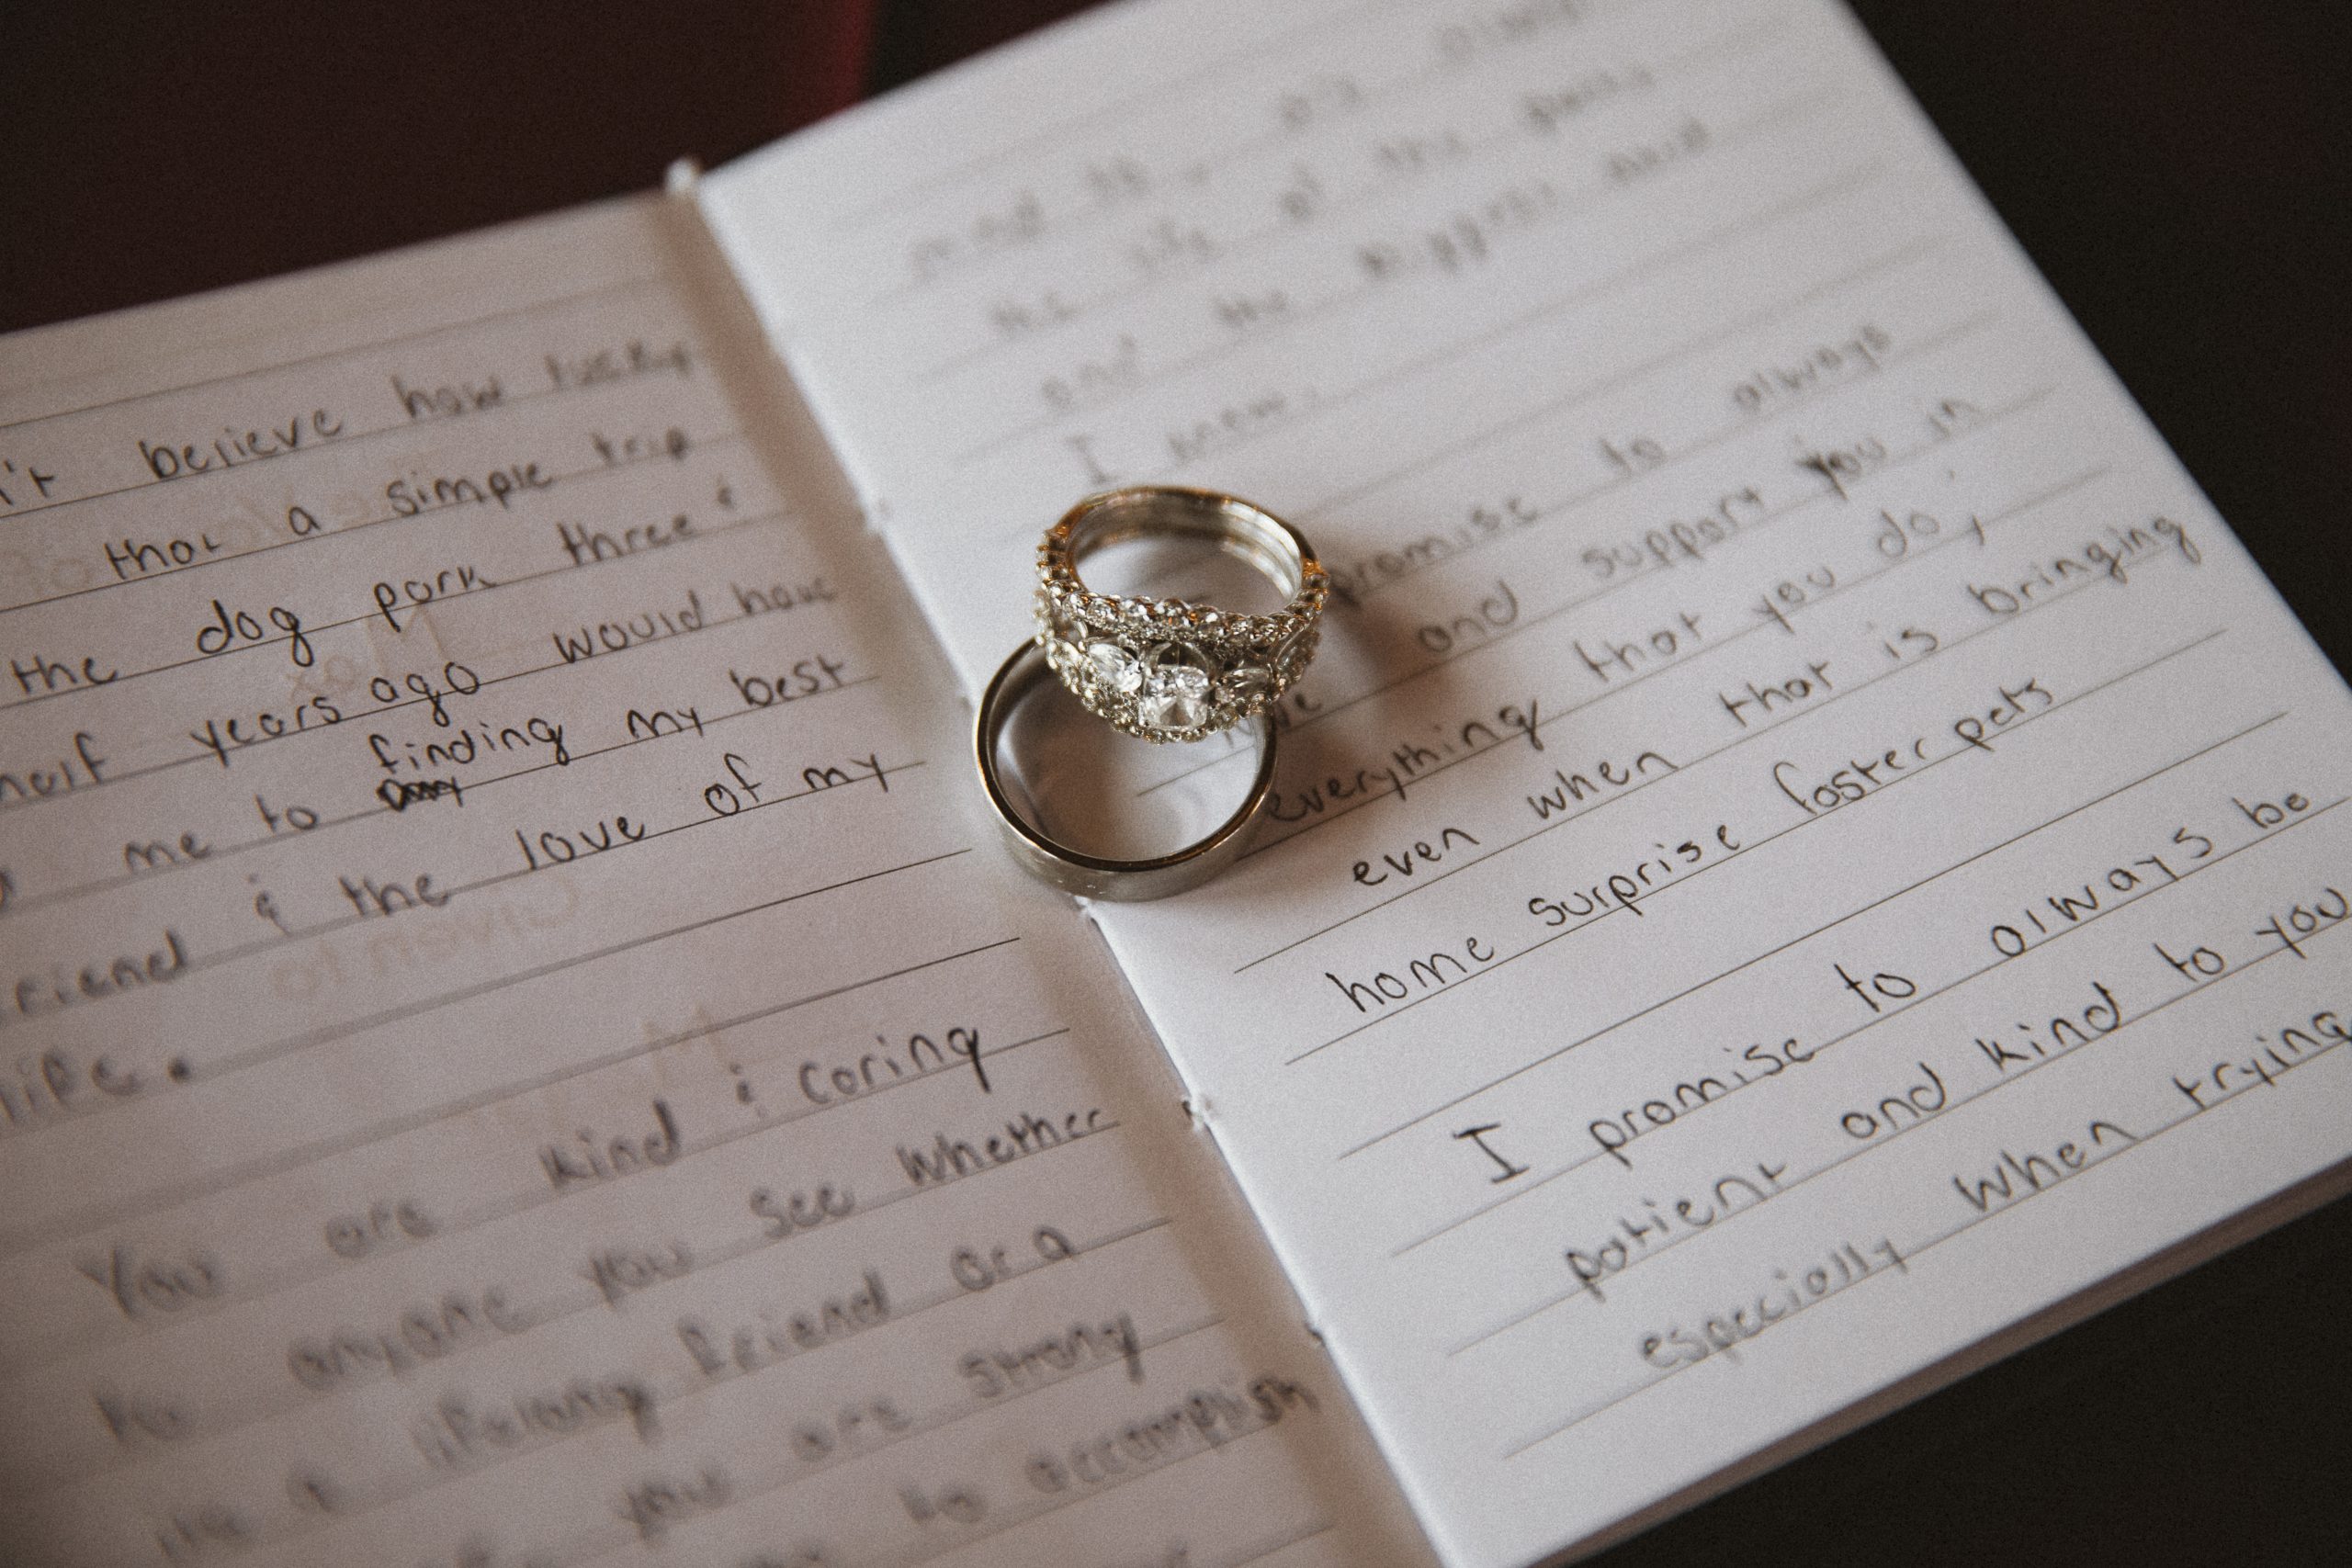 believe how lucky
that a simple trip
the dog park three &
half years ago would have
me to finding my best
friend & the love of my
life.
You are kind & caring
to anyone you see whether
its a lifelong friend or a
you are strong
to accomplish
and the biggest
I know.
I promise to always
love and support you in
everything that you do,
even when that is bringing
home surprise foster pets
I promise to always be
patient and kind to you
especially when trying